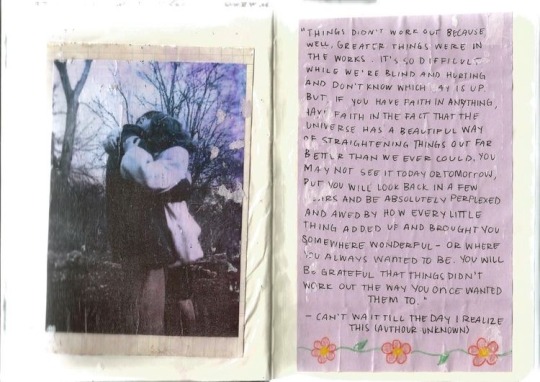 "THINGS DIDN'T WORK OUT BECAUSE,
WELL, GREATER THINGS WERE IN
THE WORKS. IT'S SO DIFFICULT
WHILE WE'RE BLIND AND HURTING
AND DON'T KNOW WHICH AY IS UP.
BUT IF YOU HAVE FAITH IN ANYTHING,
HAVE FAITH IN THE FACT THAT THE
UNIVERSE HAS A BEAUTIFUL WAY
OF STRAIGHTENING THINGS OUT FAR
BETTER THAN WE EVER COULD. YOU
MAY NOT SEE IT TODAY OR TOMORROW,
BUT YOU WILL LOOK BACK IN A FEW
AND BE ABSOLUTELY PERPLEXED
AND AWED BY HOW EVERY LITTLE
THING ADDED UP AND BROUGHT YOU
SOMEWHERE WONDERFUL - OR WHERE
YOU ALWAYS WANTED TO BE. YOU WILL
BE GRATEFUL THAT THINGS DIDN'T
WORK OUT THE WAY YOU ONCE WANTED
THEM TO."
- CAN'T WAIT TILL THE DAY I REALIZE
THIS (AUTHOUR UNKNOWN)